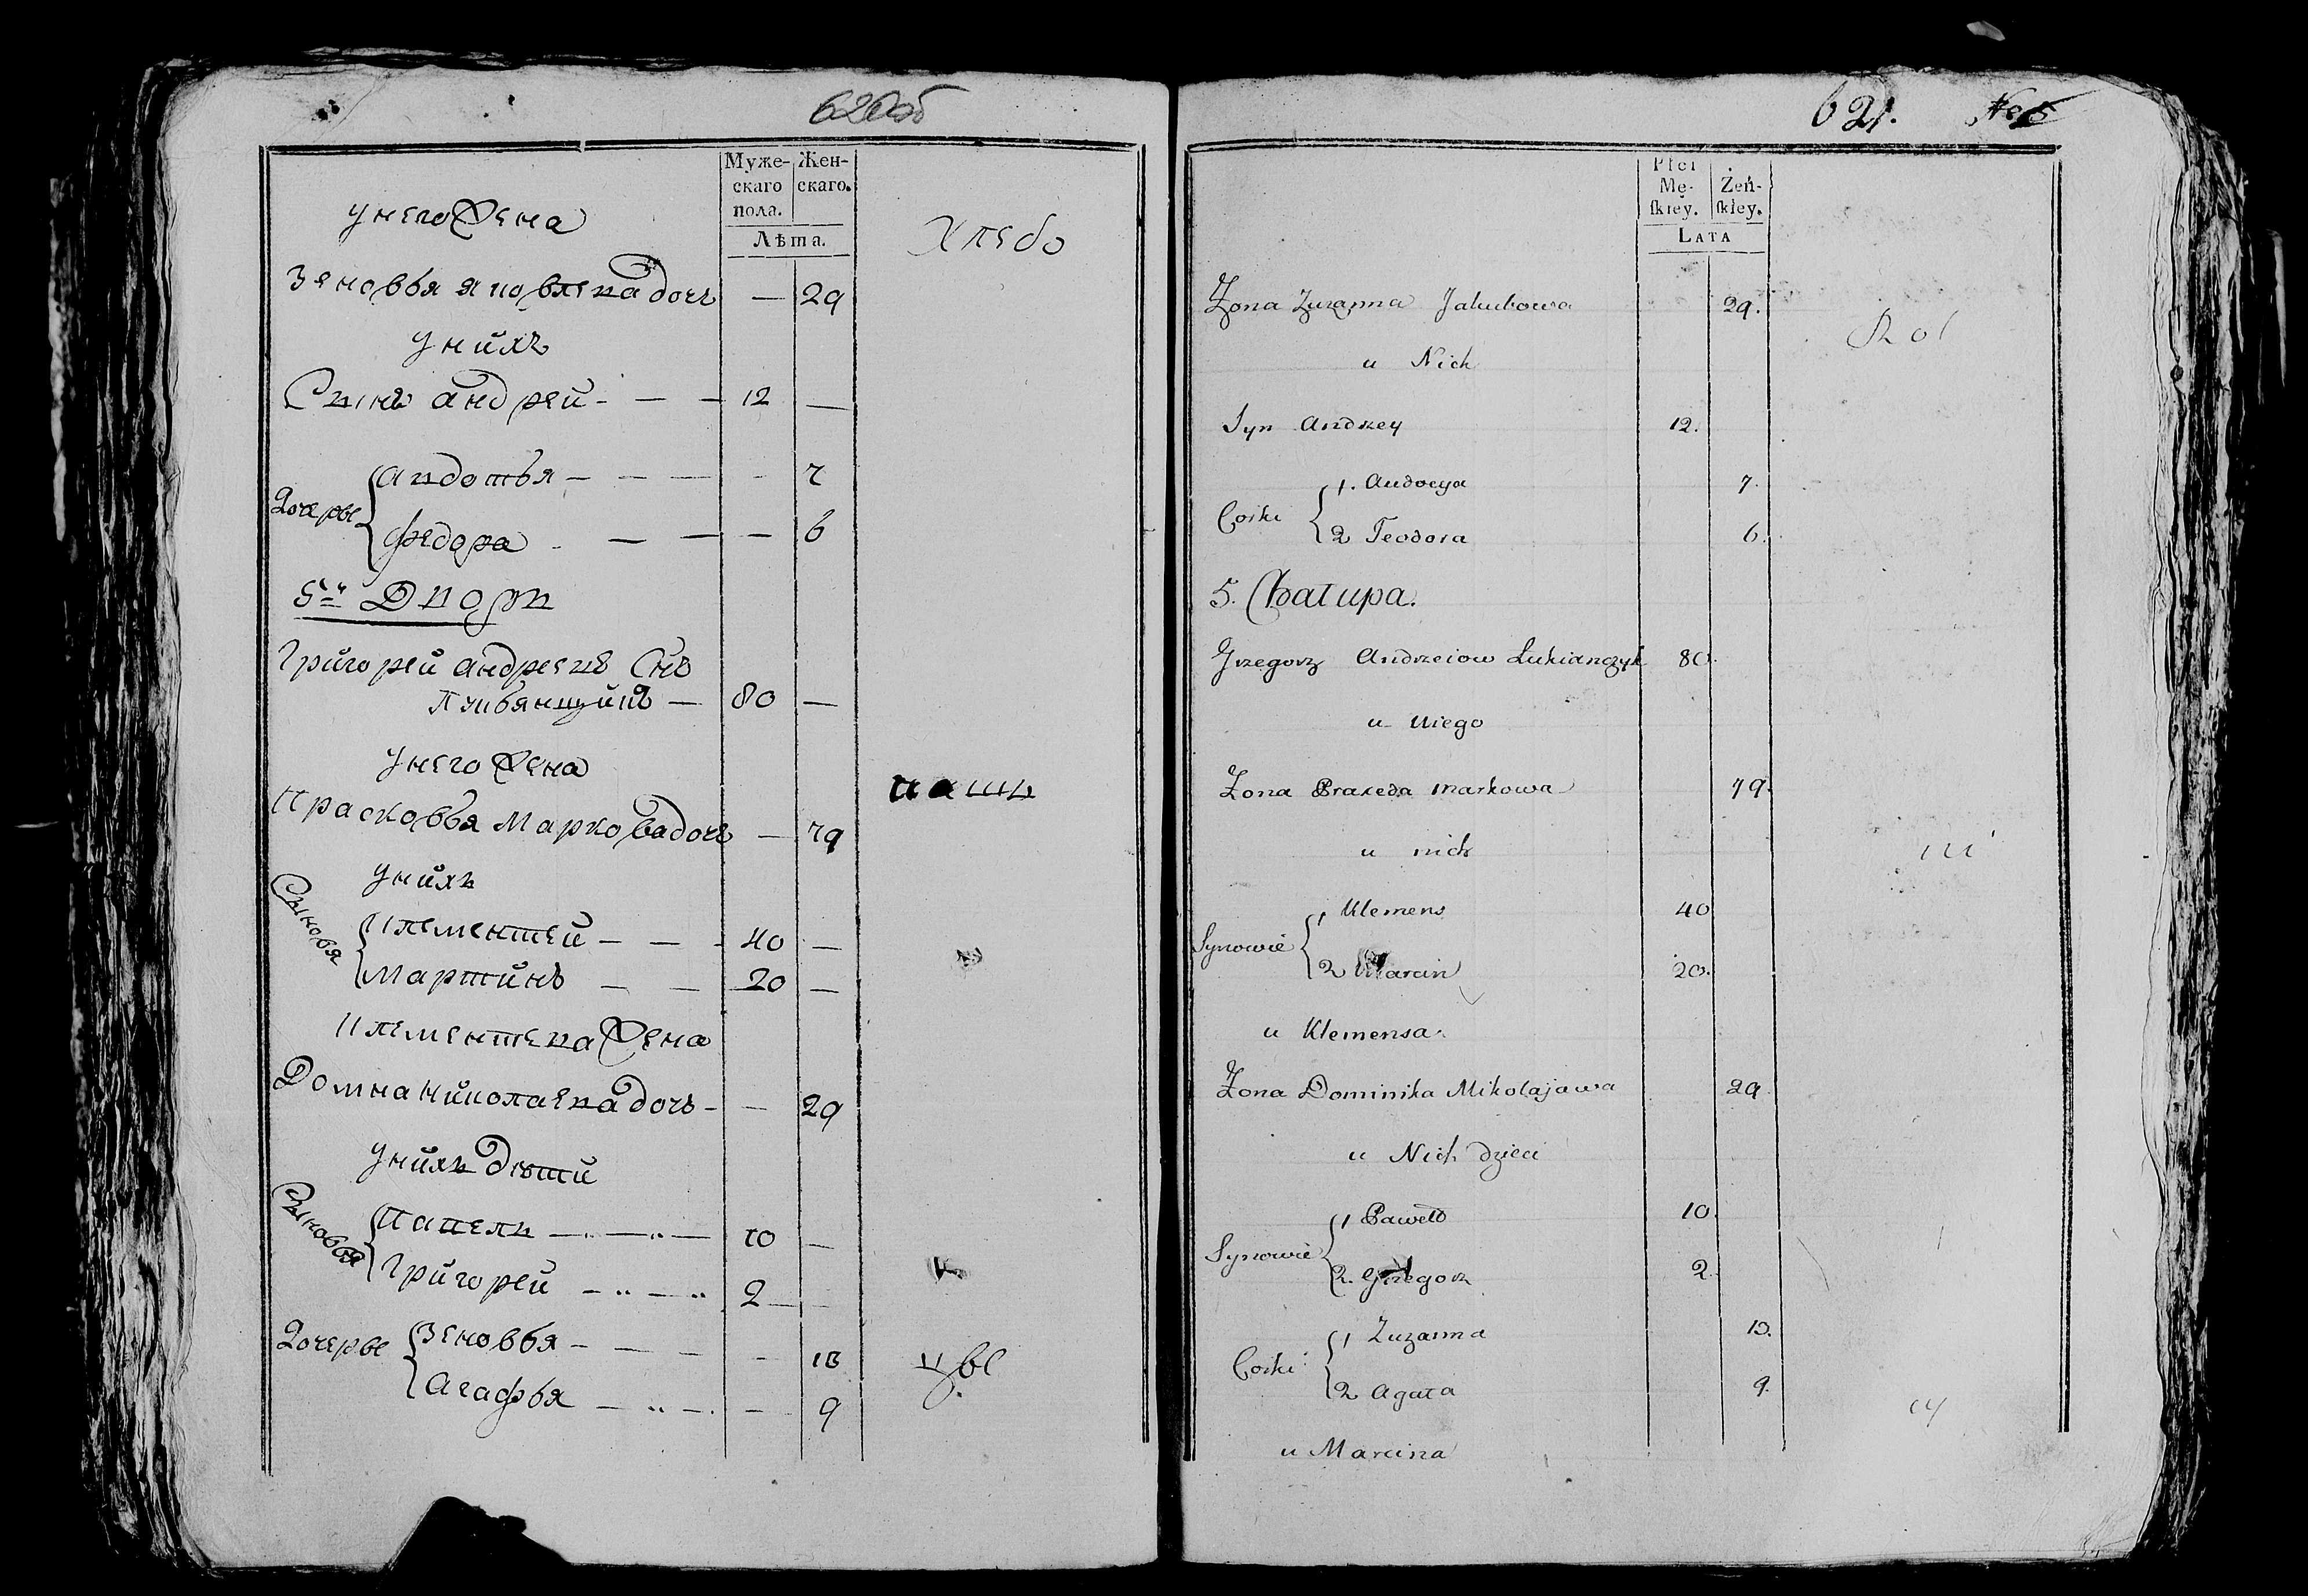 620об
Муже-
скаго
пола.
Жен-
скаго.
Лѣта.
Хлебо
у него жена
Зеновья Яковлева дочь — 29
у нихъ
Сынъ Андрей - — — 12 —
Дочерье
Андотья — — — - 7
Федора - — — — 6
5й Дворъ
Григорей Андреевъ Снъ
Лукьянщикъ — 80 —
у него жена
пашъ
Прасковья Маркова дочь — 79
у нихъ
Сыновя
Клементей — — - 40 —
Мартинъ — — 20 —
Клементева жена
Домна Николаева дочь - — 29
у нихъ дѣти
Сыновья
Павелъ — „ — „ — 10 —
Григорей — „ — „ 2 —
Дочерье
Зеновья — — — - 10
Агафья — „ — . — 9
621.
Płci
Mę-
ſkiey.
Żeń-
ſkiey.
LATA
Rol
Żona Zuzanna Jakubowa 29.
u Nich
Syn Andrzey 12.
Corki
1. Audocya 7.
2 Teodora 6.
5. Chatupa.
Grzegorz Andrzeiow Lukianczyk 80.
u Niego
Żona Praxeda Markowa 79.
u nich
ni
Synowie
1 Klemens 40
2 Marcin 20.
u Klemensa
Żona Dominika Mikolajowa 29
u Nich dzieci
Synowie
1 Paweł 10.
2. Grzegorz 2.
Corki
1 Zuzanna 10.
2 Agata 9.
cy
u Marcina